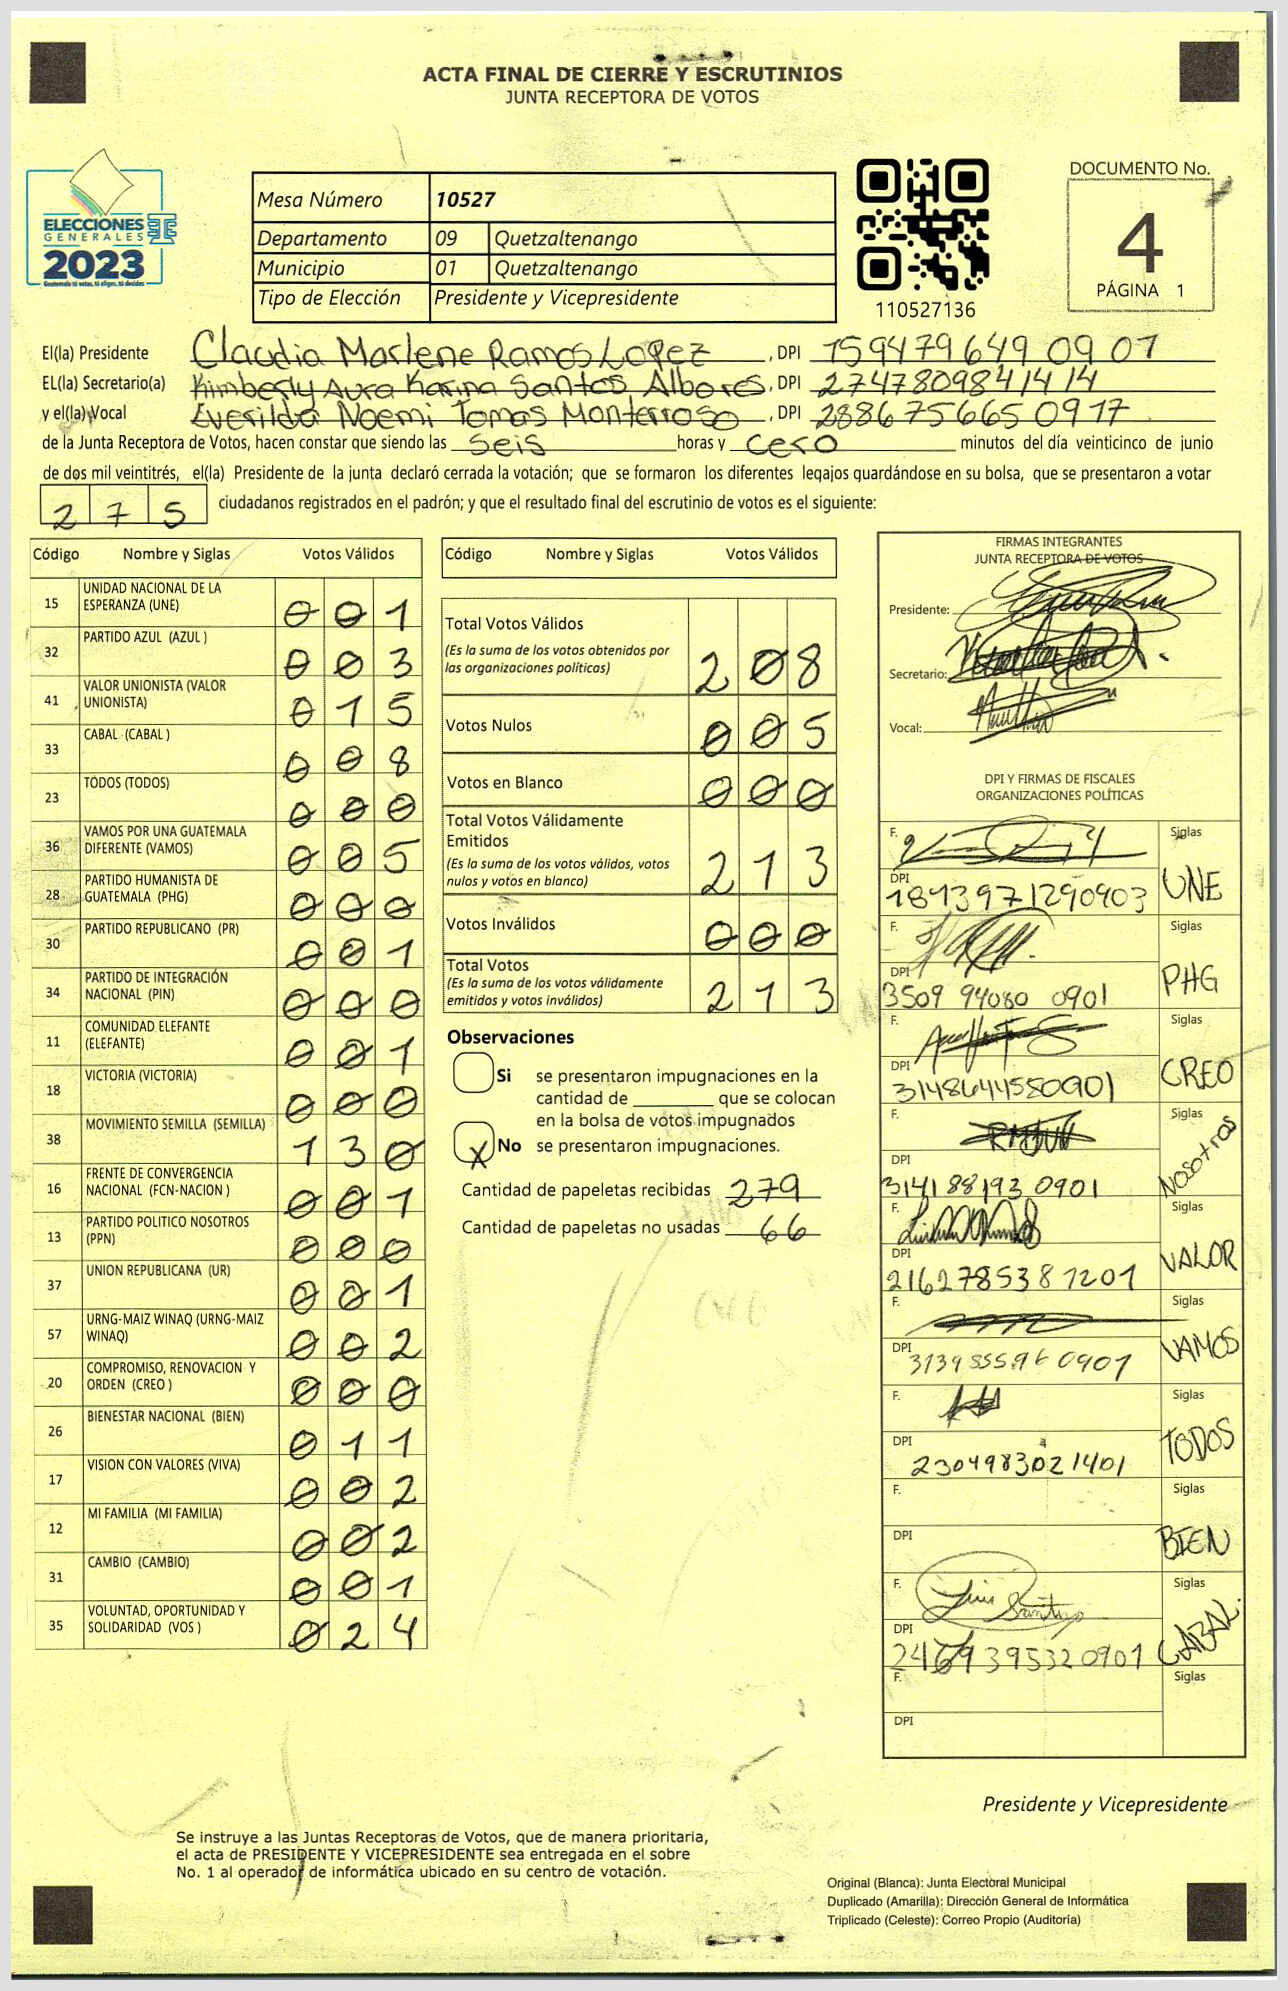 ACTA FINAL DE CIERRE Y ESCRUTINIOS
JUNTA RECEPTORA DE VOTOS
ELECCIONES
GENERALES
2023
Guatemala tú votas, tú eliges, tú decides
Mesa Número 10527
Departamento 09 Quetzaltenango
Municipio 01 Quetzaltenango
Tipo de Elección Presidente y Vicepresidente
110527136
DOCUMENTO No.
4
PÁGINA 1
El(la) Presidente Claudia Marlene Ramos Lopez, DPI 159479649 0901
EL(la) Secretario(a) Kimberly Aura Karina Santos Albores, DPI 2747809841414
y el(la) Vocal Everilda Noemi Tomas Monterroso, DPI 288675665 0917
de la Junta Receptora de Votos, hacen constar que siendo las seis horas y cero minutos del día veinticinco de junio
de dos mil veintitrés, el(la) Presidente de la junta declaró cerrada la votación; que se formaron los diferentes legajos guardándose en su bolsa, que se presentaron a votar
275 ciudadanos registrados en el padrón; y que el resultado final del escrutinio de votos es el siguiente:
Código Nombre y Siglas Votos Válidos
15 UNIDAD NACIONAL DE LA ESPERANZA (UNE) 001
32 PARTIDO AZUL (AZUL ) 003
41 VALOR UNIONISTA (VALOR UNIONISTA) 015
33 CABAL (CABAL ) 008
23 TODOS (TODOS) 000
36 VAMOS POR UNA GUATEMALA DIFERENTE (VAMOS) 005
28 PARTIDO HUMANISTA DE GUATEMALA (PHG) 000
30 PARTIDO REPUBLICANO (PR) 001
34 PARTIDO DE INTEGRACIÓN NACIONAL (PIN) 000
11 COMUNIDAD ELEFANTE (ELEFANTE) 001
18 VICTORIA (VICTORIA) 000
38 MOVIMIENTO SEMILLA (SEMILLA) 130
16 FRENTE DE CONVERGENCIA NACIONAL (FCN-NACION ) 001
13 PARTIDO POLITICO NOSOTROS (PPN) 000
37 UNION REPUBLICANA (UR) 001
57 URNG-MAIZ WINAQ (URNG-MAIZ WINAQ) 002
20 COMPROMISO, RENOVACION Y ORDEN (CREO ) 000
26 BIENESTAR NACIONAL (BIEN) 011
17 VISION CON VALORES (VIVA) 002
12 MI FAMILIA (MI FAMILIA) 002
31 CAMBIO (CAMBIO) 001
35 VOLUNTAD, OPORTUNIDAD Y SOLIDARIDAD (VOS ) 024
Código Nombre y Siglas Votos Válidos
Total Votos Válidos
(Es la suma de los votos obtenidos por
las organizaciones políticas) 208
Votos Nulos 005
Votos en Blanco 000
Total Votos Válidamente
Emitidos
(Es la suma de los votos válidos, votos
nulos y votos en blanco) 213
Votos Inválidos 000
Total Votos
(Es la suma de los votos válidamente
emitidos y votos inválidos) 213
Observaciones
Si se presentaron impugnaciones en la
cantidad de ________ que se colocan
en la bolsa de votos impugnados
X No se presentaron impugnaciones.
Cantidad de papeletas recibidas 279
Cantidad de papeletas no usadas 66
FIRMAS INTEGRANTES
JUNTA RECEPTORA DE VOTOS
Presidente:
Secretario:
Vocal:
DPI Y FIRMAS DE FISCALES
ORGANIZACIONES POLÍTICAS
F. Siglas
DPI
1843971290903 UNE
F. Siglas
DPI
3509 94080 0901 PHG
F. Siglas
DPI
3148644580901 CREO
F. Siglas
DPI
314188193 0901 NOSOTROS
F. Siglas
DPI
2162785381201 VALOR
F. Siglas
DPI
313985596 0901 VAMOS
F. Siglas
DPI
2304983021401 TODOS
F. Siglas
DPI BIEN
F. Luis Santizo Siglas
DPI
CABAL.
F. Siglas
DPI
Presidente y Vicepresidente
Se instruye a las Juntas Receptoras de Votos, que de manera prioritaria,
el acta de PRESIDENTE Y VICEPRESIDENTE sea entregada en el sobre
No. 1 al operador de informática ubicado en su centro de votación.
Original (Blanca): Junta Electoral Municipal
Duplicado (Amarilla): Dirección General de Informática
Triplicado (Celeste): Correo Propio (Auditoría)